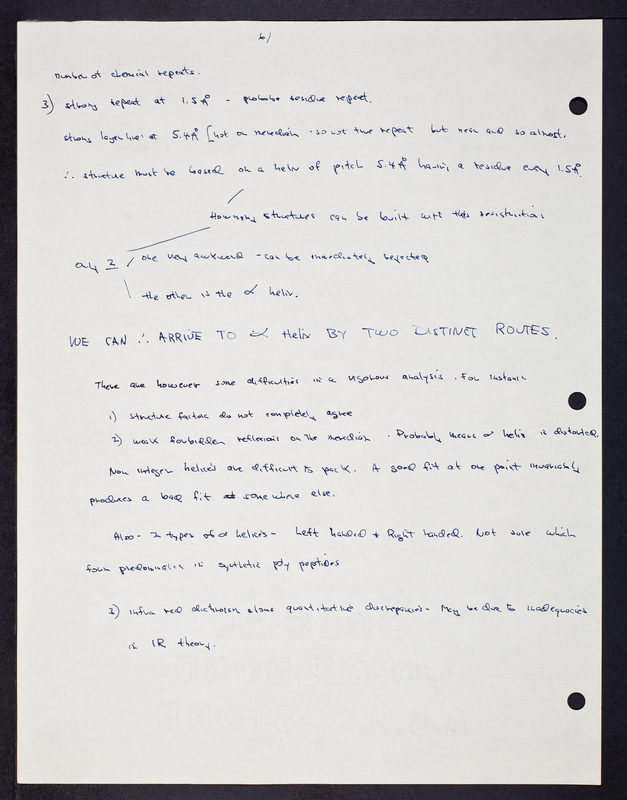 6/
number of chemical repeats.
3) strong repeat at 1.5 A° - probable residue repeat.
strong layer line at 5.4 A° [not on meridian - so not true repeat but near and so almost.
∴ structure must be based on a helix of pitch 5.4 A° having a residue every 1.5 A°.
How many structures can be built with this restriction
only 2 / one very awkward - can be immediately rejected
\ the other is the α helix.
WE CAN ∴ ARRIVE TO α Helix BY TWO DISTINCT ROUTES.
There are however some difficulties in a rigorous analysis. For instance
1) structure factors do not completely agree
2) weak forbidden reflexions on the meridian. Probably means α helix is distorted.
Non integer helices are difficult to pack. A good fit at one point invariably
produces a bad fit somewhere else.
Also - 2 types of α helices - Left handed & Right handed. Not sure which
form predominates in synthetic poly peptides
3) infra red dichroism shows quantitative discrepancies - May be due to inadequacies
in IR theory.